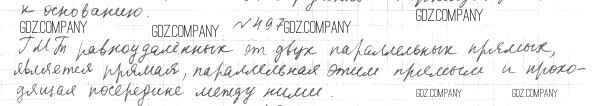 к основанию.
GDZ.COMPANY GDZ.COMPANY №497 GDZ.COMPANY
ГМТ равноудалённых от двух параллельных прямых,
является прямая, параллельная этим прямым и прохо-
дящая посередине между ними. GDZ.COMPANY GDZ.COMPANY